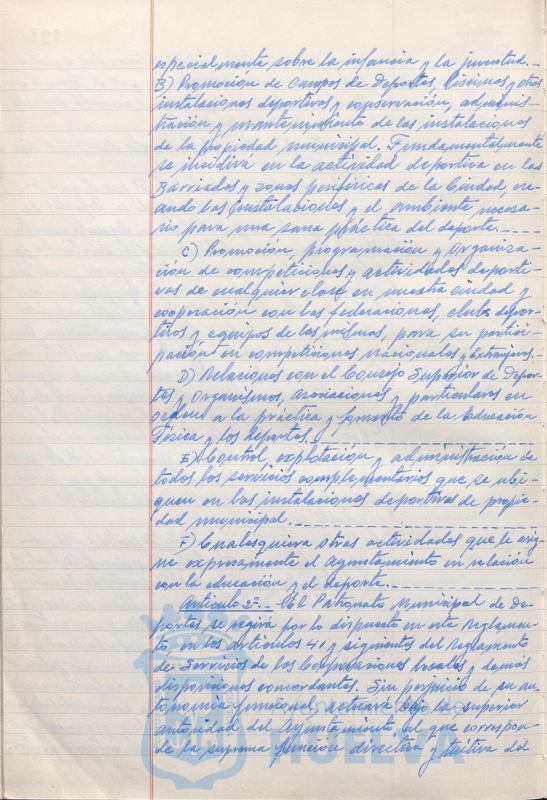 especialmente sobre la infancia y la juventud.-
B) Promoción de Campos de Deportes, Piscinas y otras
instalaciones deportivas y conservación, adminis-
tración y mantenimiento de las instalaciones
de la propiedad municipal. Fundamentalmente
se incidirá en la actividad deportiva en las
Barriadas y zonas periféricas de la Ciudad, cre-
ando las instalaciones y el ambiente necesa-
rio para una sana práctica del deporte.-----
C) Promoción, programación y organiza-
ción de competiciones y actividades deporti-
vas de cualquier clase en nuestra ciudad y
cooperación con las federaciones, clubs depor-
tivos y equipos de los mismos, para su partici-
pación en competiciones nacionales y extranjeras.-
D) Relaciones con el Consejo Superior de Depor-
tes y Organismos, Asociaciones y particulares en
orden a la práctica y fomento de la Educación
Física y los deportes.--------------------
E) Control, explotación y administración de
todos los servicios complementarios que se ubi-
quen en las instalaciones deportivas de propie-
dad municipal.--------------------
F) Cualesquiera otras actividades que le asig-
ne expresamente el Ayuntamiento en relación
con la educación y el deporte.-------------
Artículo 3º.- El Patronato Municipal de De-
portes se regirá por lo dispuesto en este Reglamen-
to, en los artículos 41 y siguientes del Reglamento
de Servicios de las Corporaciones Locales y demás
disposiciones concordantes. Sin perjuicio de su au-
tonomía funcional, actuará bajo la superior
autoridad del Ayuntamiento, al que correspon-
de la suprema función directiva y tuitiva del
HUELVA